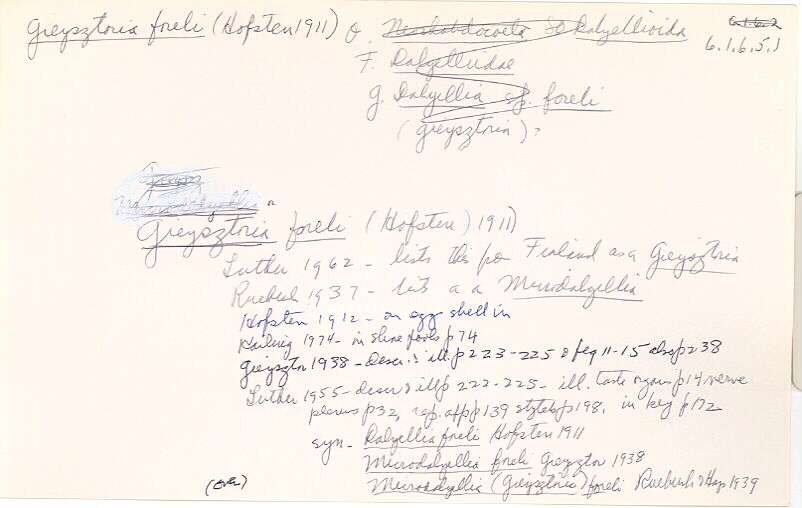 Gieysztoria foreli (Hofsten 1911) O. Neorhabdocoela SO Dalyellioida
6.1.6.2
6.1.6.5.1
F. Dalyelliidae
g Dalyellia sp. foreli
(gieysztoria)?
Microdalyellia
Gieysztoria foreli (Hofsten) 1911)
Luther 1962 - lists this for Finland as a Gieysztoria
Ruebush 1937 - lists a a Microdalyellia
Hofsten 1912 - on egg shell in
1974 - in shore pools p74
Gieysztor 1938 - descr. & ill p 223-225 & fig 11-15 also p238
Luther 1955 - descr & ill p 222-225 - ill. taste organs p14 nerve
plexus p32, rep. app p139 stylets p198, in key p172
syn - Dalyellia foreli Hofsten 1911
Microdalyellia foreli Gieysztor 1938
Microdalyellia (Gieysztoria) foreli Ruebush & Hays 1939
(over)